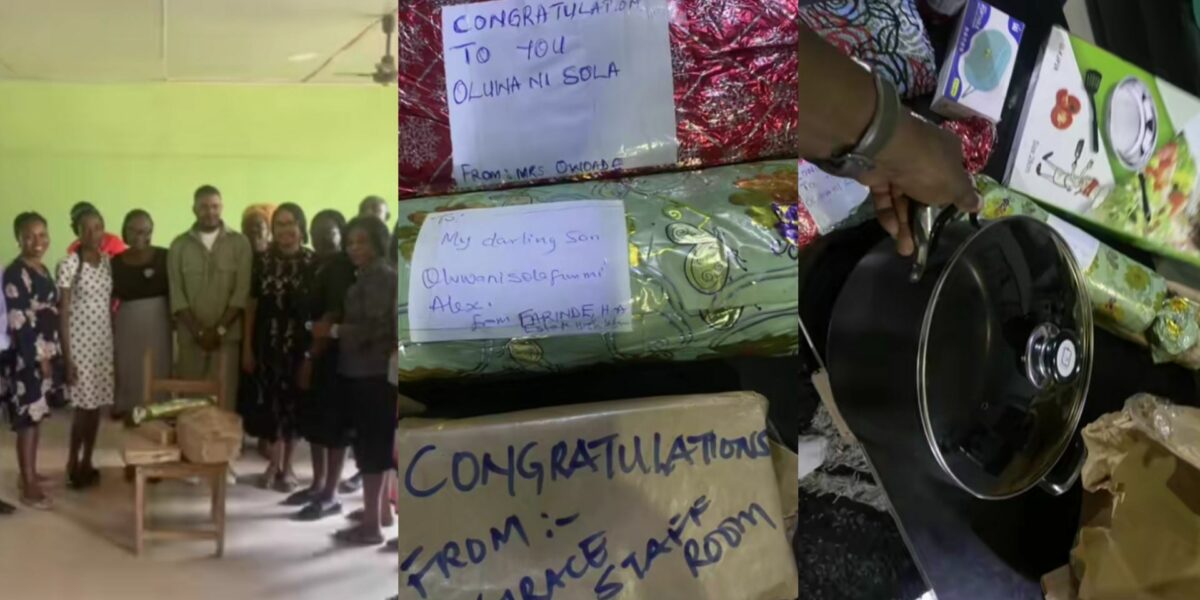 CONGRATULATION
TO YOU
OLUWANISOLA
FROM:- MRS OWOADE
To:
My darling Son
Oluwanisolafunmi
Alex.
From FARINDE H.A
CONGRATULATIONS
FROM :-
STAFF
ROOM